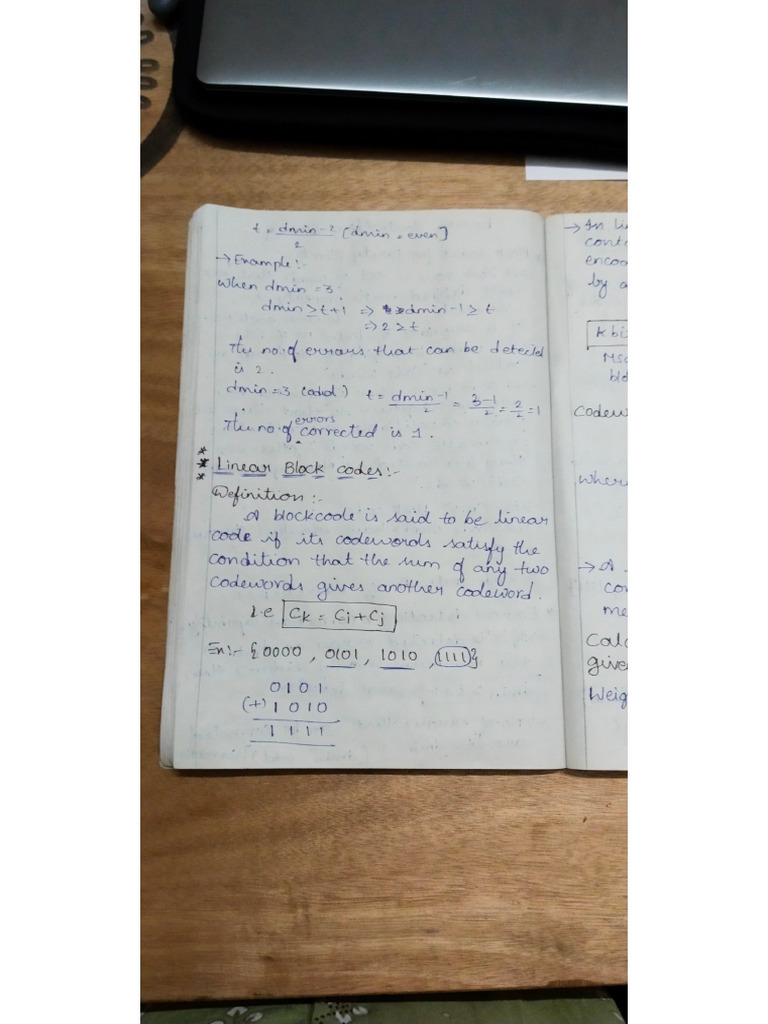 t = dmin-2/2 [dmin = even]
→ Example:-
when dmin = 3
dmin ≥ t+1 ⇒ dmin-1 ≥ t
⇒ 2 ≥ t
The no. of errors that can be detected
is 2.
dmin=3 (odd) t = dmin-1/2 = 3-1/2 = 2/2 = 1
The no. of errors corrected is 1.
*** Linear Block codes:-
Definition:-
A blockcode is said to be linear
code if its codewords satisfy the
condition that the sum of any two
codewords gives another codeword.
i.e Ck = Ci + Cj
Ex:- {0000, 0101, 1010, 1111}
0101
(+) 1010
1111
→ In li
conto
encod
by a
k bi
blo
codew
wher
→ A
con
me
Calc
give
Weig